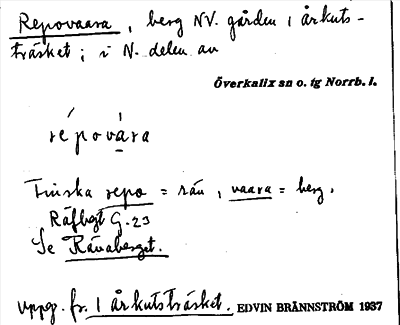 Repovaara, berg NV. gården i årkuts-
träsket; i N. delen av
Överkalix sn o. tg Norrb. l.
répovára
Finska repo = räv, vaara = berg.
Räfbgt G. 23
Se Rävaberget.
uppg. fr. 1 årkutsträsket. EDVIN BRÄNNSTRÖM 1937